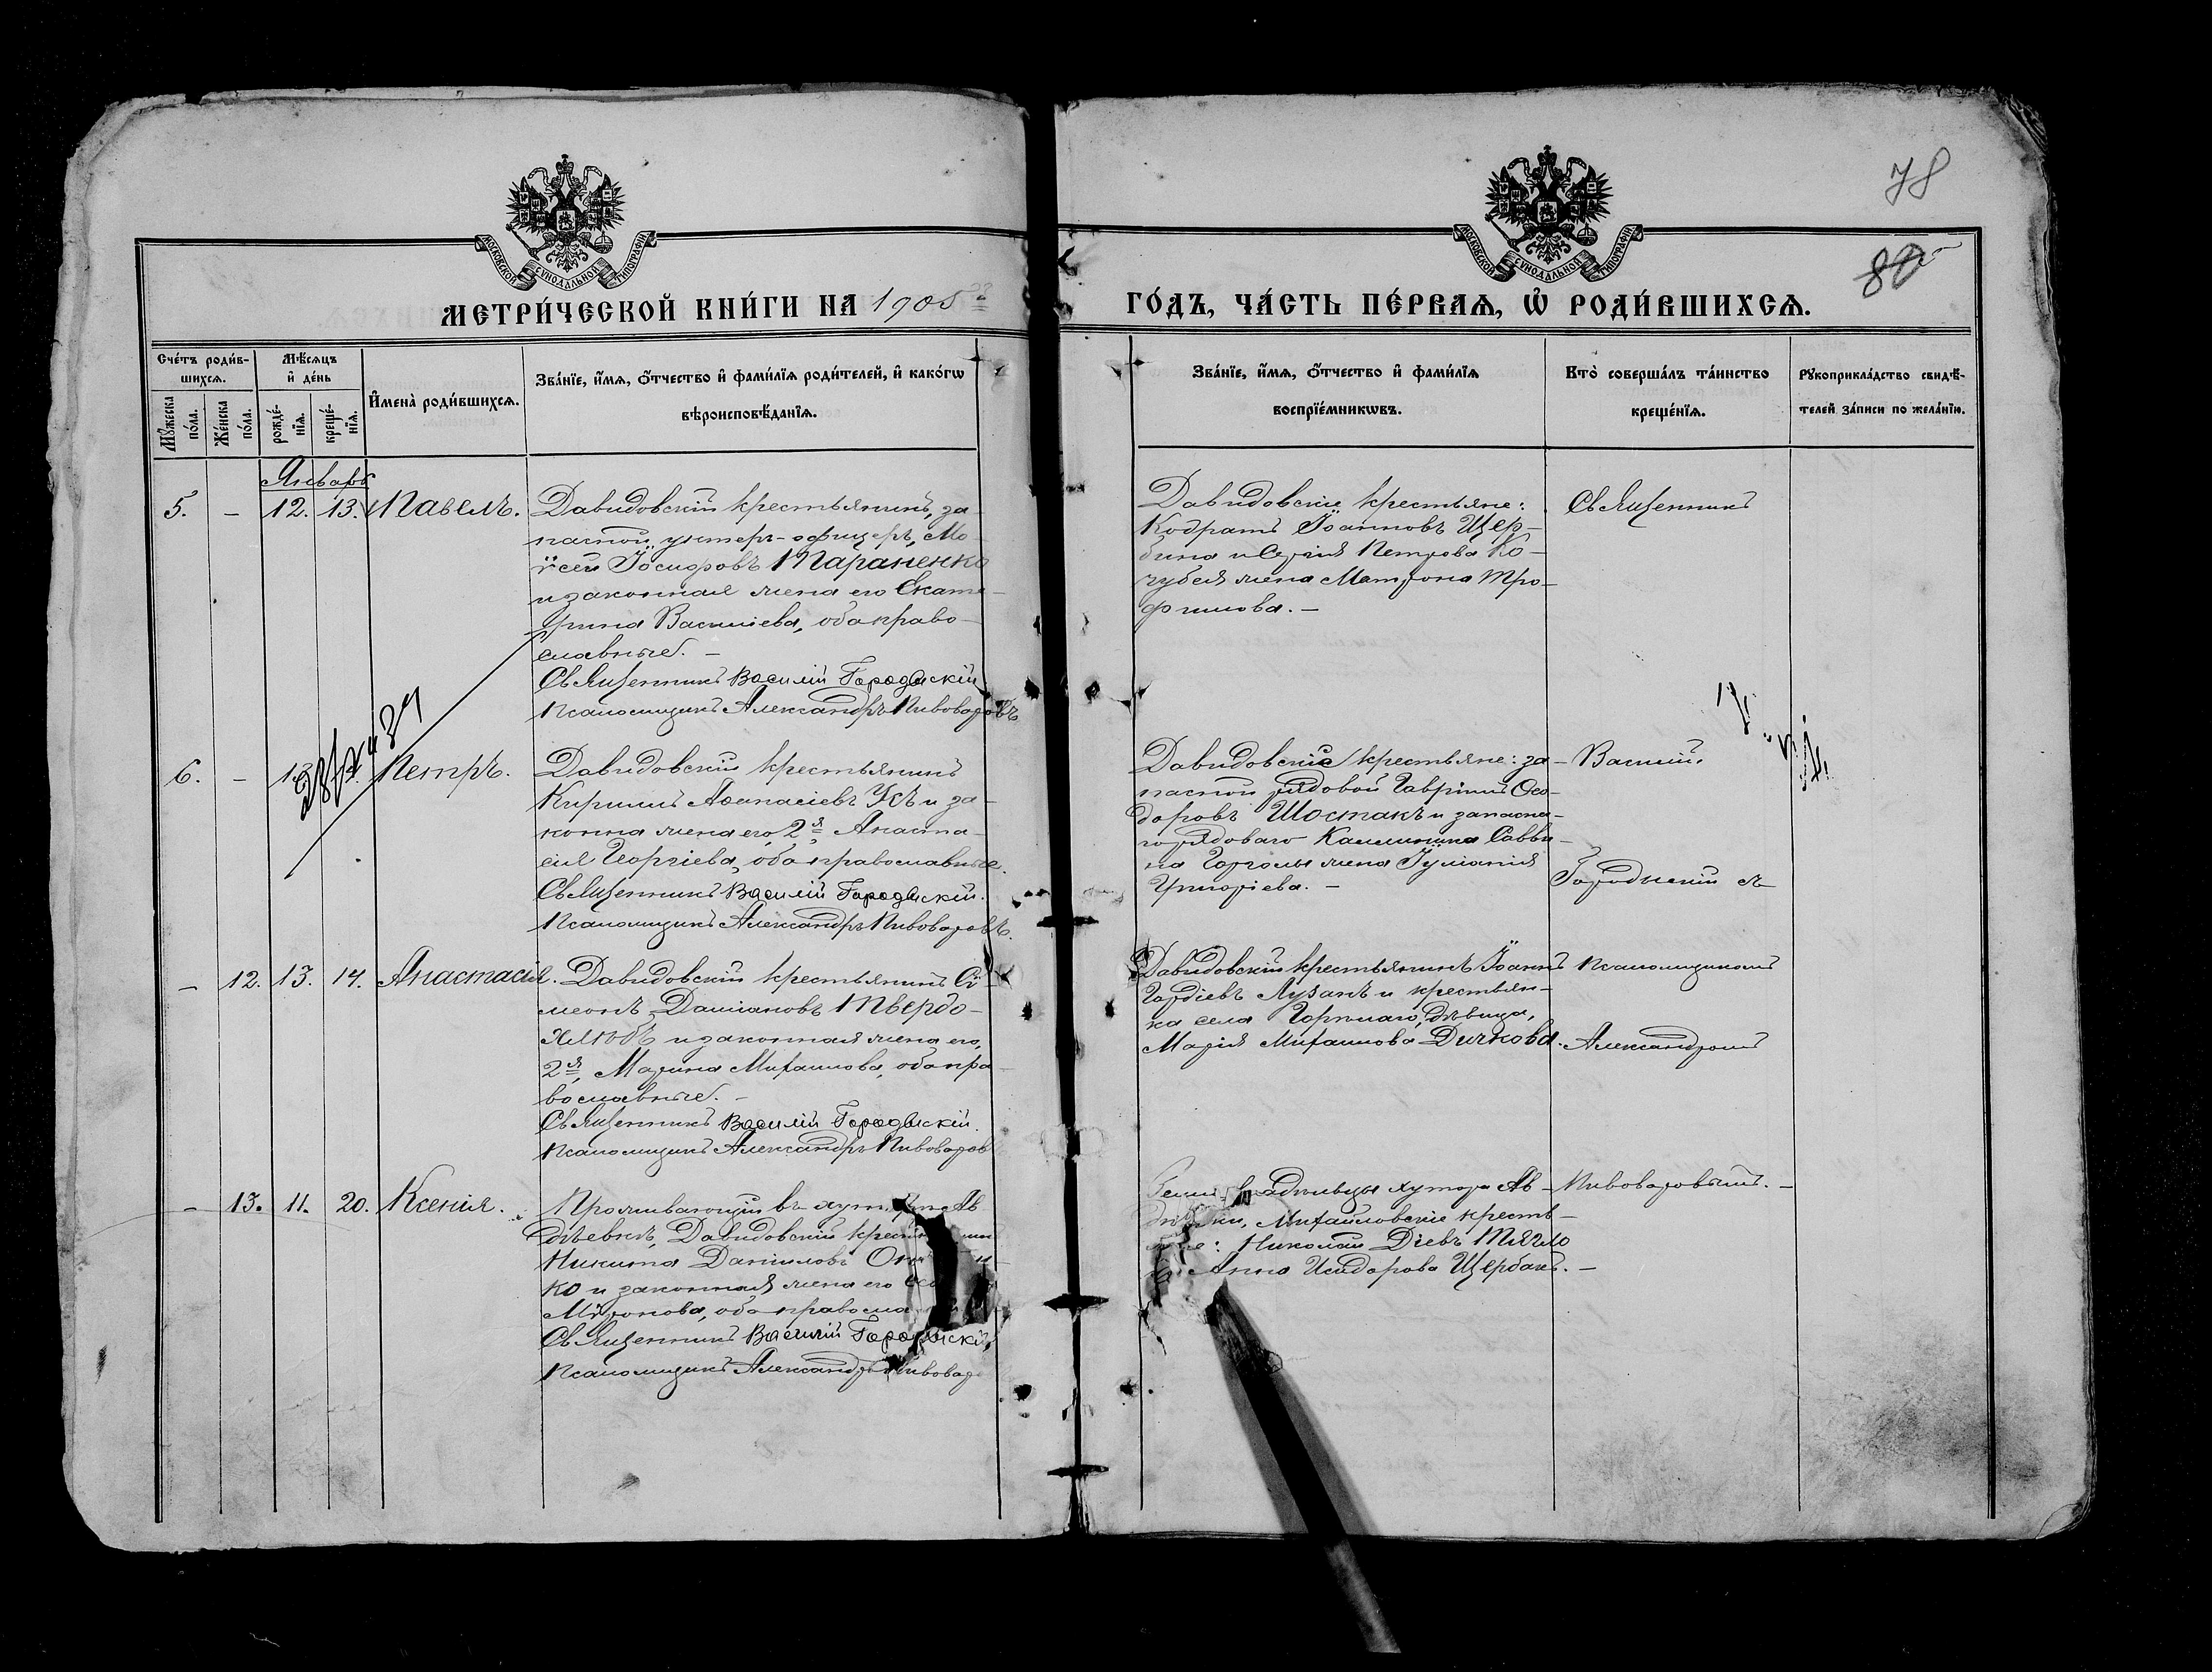 78
80
МОСКОВСКОЙ СѴНОДАЛЬНОЙ ТИПОГРАФІИ
МОСКОВСКОЙ СѴНОДАЛЬНОЙ ТИПОГРАФІИ
МЕТРИ́ЧЕСКОЙ КНИ́ГИ НА 1905
ГО́ДЪ, ЧА́СТЬ ПЕ́РВАѦ, Ѡ҆ РОДИ́ВШИХСѦ.
Сче́тъ роди́в-
шихсѧ.
Мꙋ́жеска по́ла.
Же́нска по́ла.
Мѣ́сѧцъ
и҆ де́нь
рожде́-
нїѧ.
креще́-
нїѧ.
И҆мена̀ роди́вшихсѧ.
Зва́нїе, и҆́мѧ, ѻ҆́тчество и҆ фами́лїѧ роди́телей, и҆ како́гѡ
вѣроисповѣ́данїѧ.
Зва́нїе, и҆́мѧ, ѻ҆́тчество и҆ фами́лїѧ
воспрїе́мникѡвъ.
Кто̀ соверша́лъ та́инство
креще́нїѧ.
Рꙋкоприкла́дство свидѣ́-
телей за́писи по жела́нїю.
Январь
5. - 12. 13. Павелъ.
Давидовскій крестьянинъ, за-
пасной унтеръ-офицеръ, Мо-
ѵсей Іосифовъ Параненко
и законная жена его Екате-
рина Василіева, оба право-
славные. -
Священникъ Василій Городыскій
Псаломщикъ Александръ Пивоваровъ
Давидовскіе крестьяне:
Кодратъ Іоанновъ Щер-
бина и Сергія Петрова Ко-
чубея жена Матрона Тро-
фимова. -
Священникъ
6. - 13. Петръ.
Давидовскій крестьянинъ
Кириллъ Аѳанасіевъ Усъ и за-
конна жена его, 2я, Анаста-
сія Георгіева, оба православные.
Священникъ Василій Городыскій.
Псаломщикъ Александръ Пивоваровъ.
Давидовскіе крестьяне: за-
пасной рядовой Гавріилъ Ѳео-
доровъ Шостакъ и запасна-
го рядоваго Каллиника Савви-
на Горголы жена Іуліанія
Григоріева. -
Василій
Городыскій съ
- 12. 13. 14. Анастасія.
Давидовскій крестьянинъ Сѵ-
меонъ Даміановъ Твердо-
хлѣбъ и законная жена его,
2я, Марина Михаилова, оба пра-
вославные. -
Священникъ Василій Городыскій.
Псаломщикъ Александръ Пивоваров
Давидовскій крестьянинъ Іоаннъ
Гордіевъ Лузанъ и крестьян-
ка села дѣвица,
Марія Михаилова Дичкова.
Псаломщикомъ
Александромъ
- 13. 11. 20. Ксенія.
Проживающій въ Ав
дѣевкѣ, Давидовскій
Никита Даніиловъ
ко и законная жена его
Мѵронова, оба правосла
Священникъ Василій Городыскій
Псаломщикъ Александръ Пивовар
хутора Ав-
Михайловскіе кресть-
Николай Діевъ Тягло
Анна Исидорова Щербакъ. -
Пивоваровымъ. -